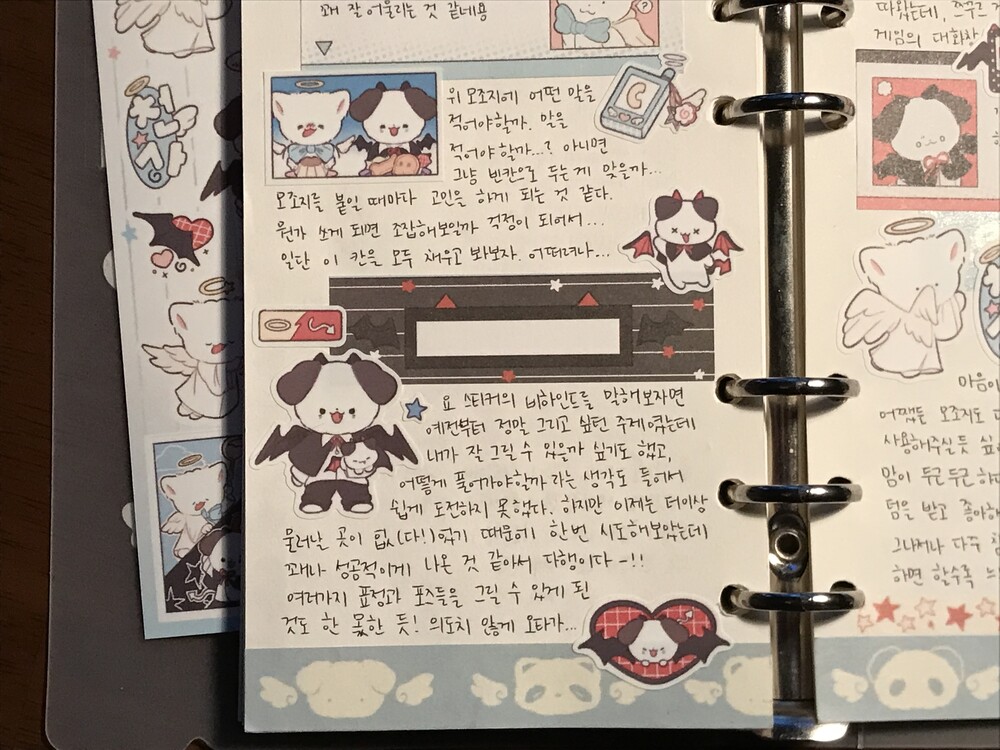 꽤 잘 어울리는 것 같네용
위 모조지에 어떤 말을
적어야할까. 말을
적어야 할까...? 아니면
그냥 빈칸으로 두는게 맞을까...
모조지를 붙일 때마다 고민을 하게 되는 것 같다.
뭔가 쓰게 되면 조잡해보일까 걱정이 되어서...
일단 이 칸을 모두 채우고 봐보자. 어떠려나...
요 스티커의 비하인드를 말해보자면
예전부터 정말 그리고 싶던 주제였는데
내가 잘 그릴 수 있을까 싶기도 했고,
어떻게 풀어가야할까 라는 생각도 들어서
쉽게 도전하지 못했다. 하지만 이제는 더이상
물러날 곳이 없(다!)었기 때문에 한번 시도해보았는데
꽤나 성공적이게 나온 것 같아서 다행이다-!!
여러가지 표정과 포즈들을 그릴 수 있게 된
것도 한 몫한 듯! 의도치 않게 오타가...
따왔는데,
게임의 대화창
마음이
어쨌든 모조지도
사용해주실듯 싶
맘이 두근두근하
덤을 받고 좋아하
그나저나 다꾸
하면 할수록